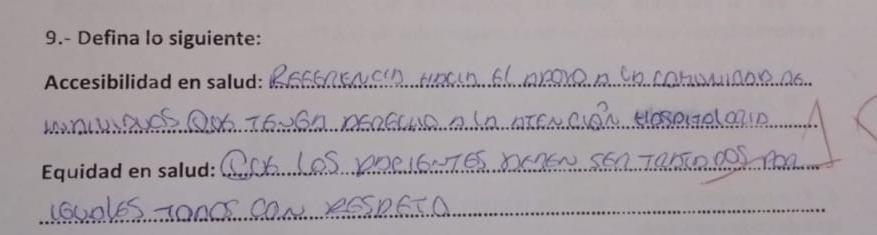 9.- Defina lo siguiente:
Accesibilidad en salud: REFERENCIA HACIA EL APOYO A LA COMUNIDAD DE
INDIVIDUOS QUE TENGA DERECHO A LA ATENCIÓN HOSPITALARIA
Equidad en salud: QUE LOS PACIENTES DEBEN SER TRATADOS POR
IGUALES TODOS CON RESPETO